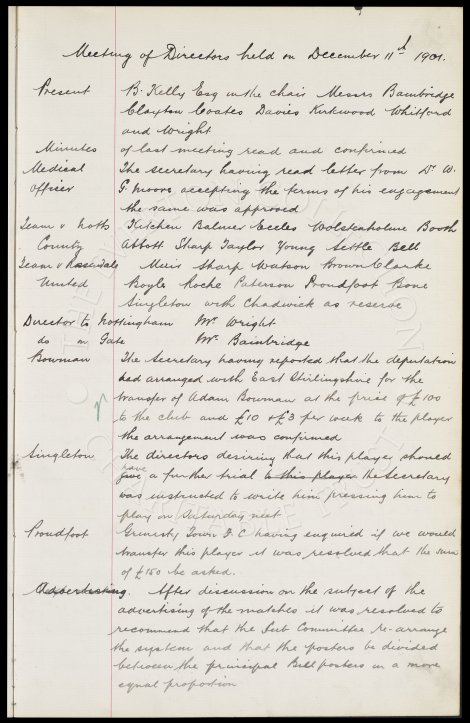 Meeting of Directors held on December 11th 1901.
Present B. Kelly Esq in the chair Messrs Bainbridge
Clayton Coates Davies Kirkwood Whitford
and Wright
Minutes of last meeting read and confirmed
Medical The Secretary having read letter from Dr W.
Officer G. Moore accepting the terms of his engagement
the same was approved
Team v Notts Kitchen Balmer Eccles Wolstenholme Booth
County Abbott Sharp Taylor Young Settle Bell
Team v Rossendale Muir Sharp Watson Brown Clarke
United Boyle Roche Paterson Proudfoot Bone
Singleton with Chadwick as reserve
Director to Nottingham Mr Wright
do in Gate Mr Bainbridge
Bowman The Secretary having reported that the deputation
had arranged with East Stirlingshire for the
transfer of Adam Bowman at the price of £100
to the club and £10 & £3 per week to the player
the arrangement was confirmed
Singleton The directors desiring that this player should
have
give a further trial to this player the Secretary
was instructed to write him pressing him to
play on Saturday next
Proudfoot Grimsby Town F.C having enquired if we would
transfer this player it was resolved that the sum
of £150 be asked.
Advertising. After discussion on the subject of the
advertising of the matches it was resolved to
recommend that the Sub Committee re-arrange
the system and that the posters be divided
between the principal Bill posters in a more
equal proportion